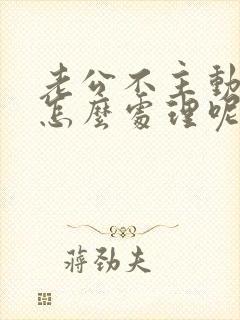 老公不主動
怎麼處理呢
蔣勁夫